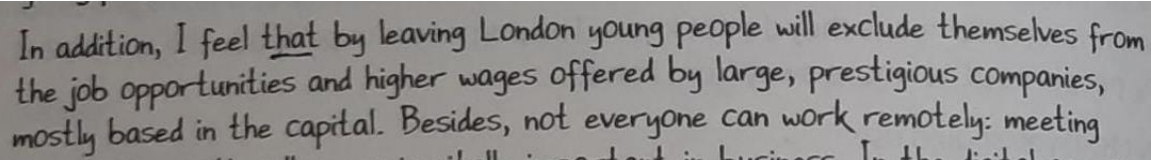 In addition, I feel that by leaving London young people will exclude themselves from
the job opportunities and higher wages offered by large, prestigious companies,
mostly based in the capital. Besides, not everyone can work remotely: meeting